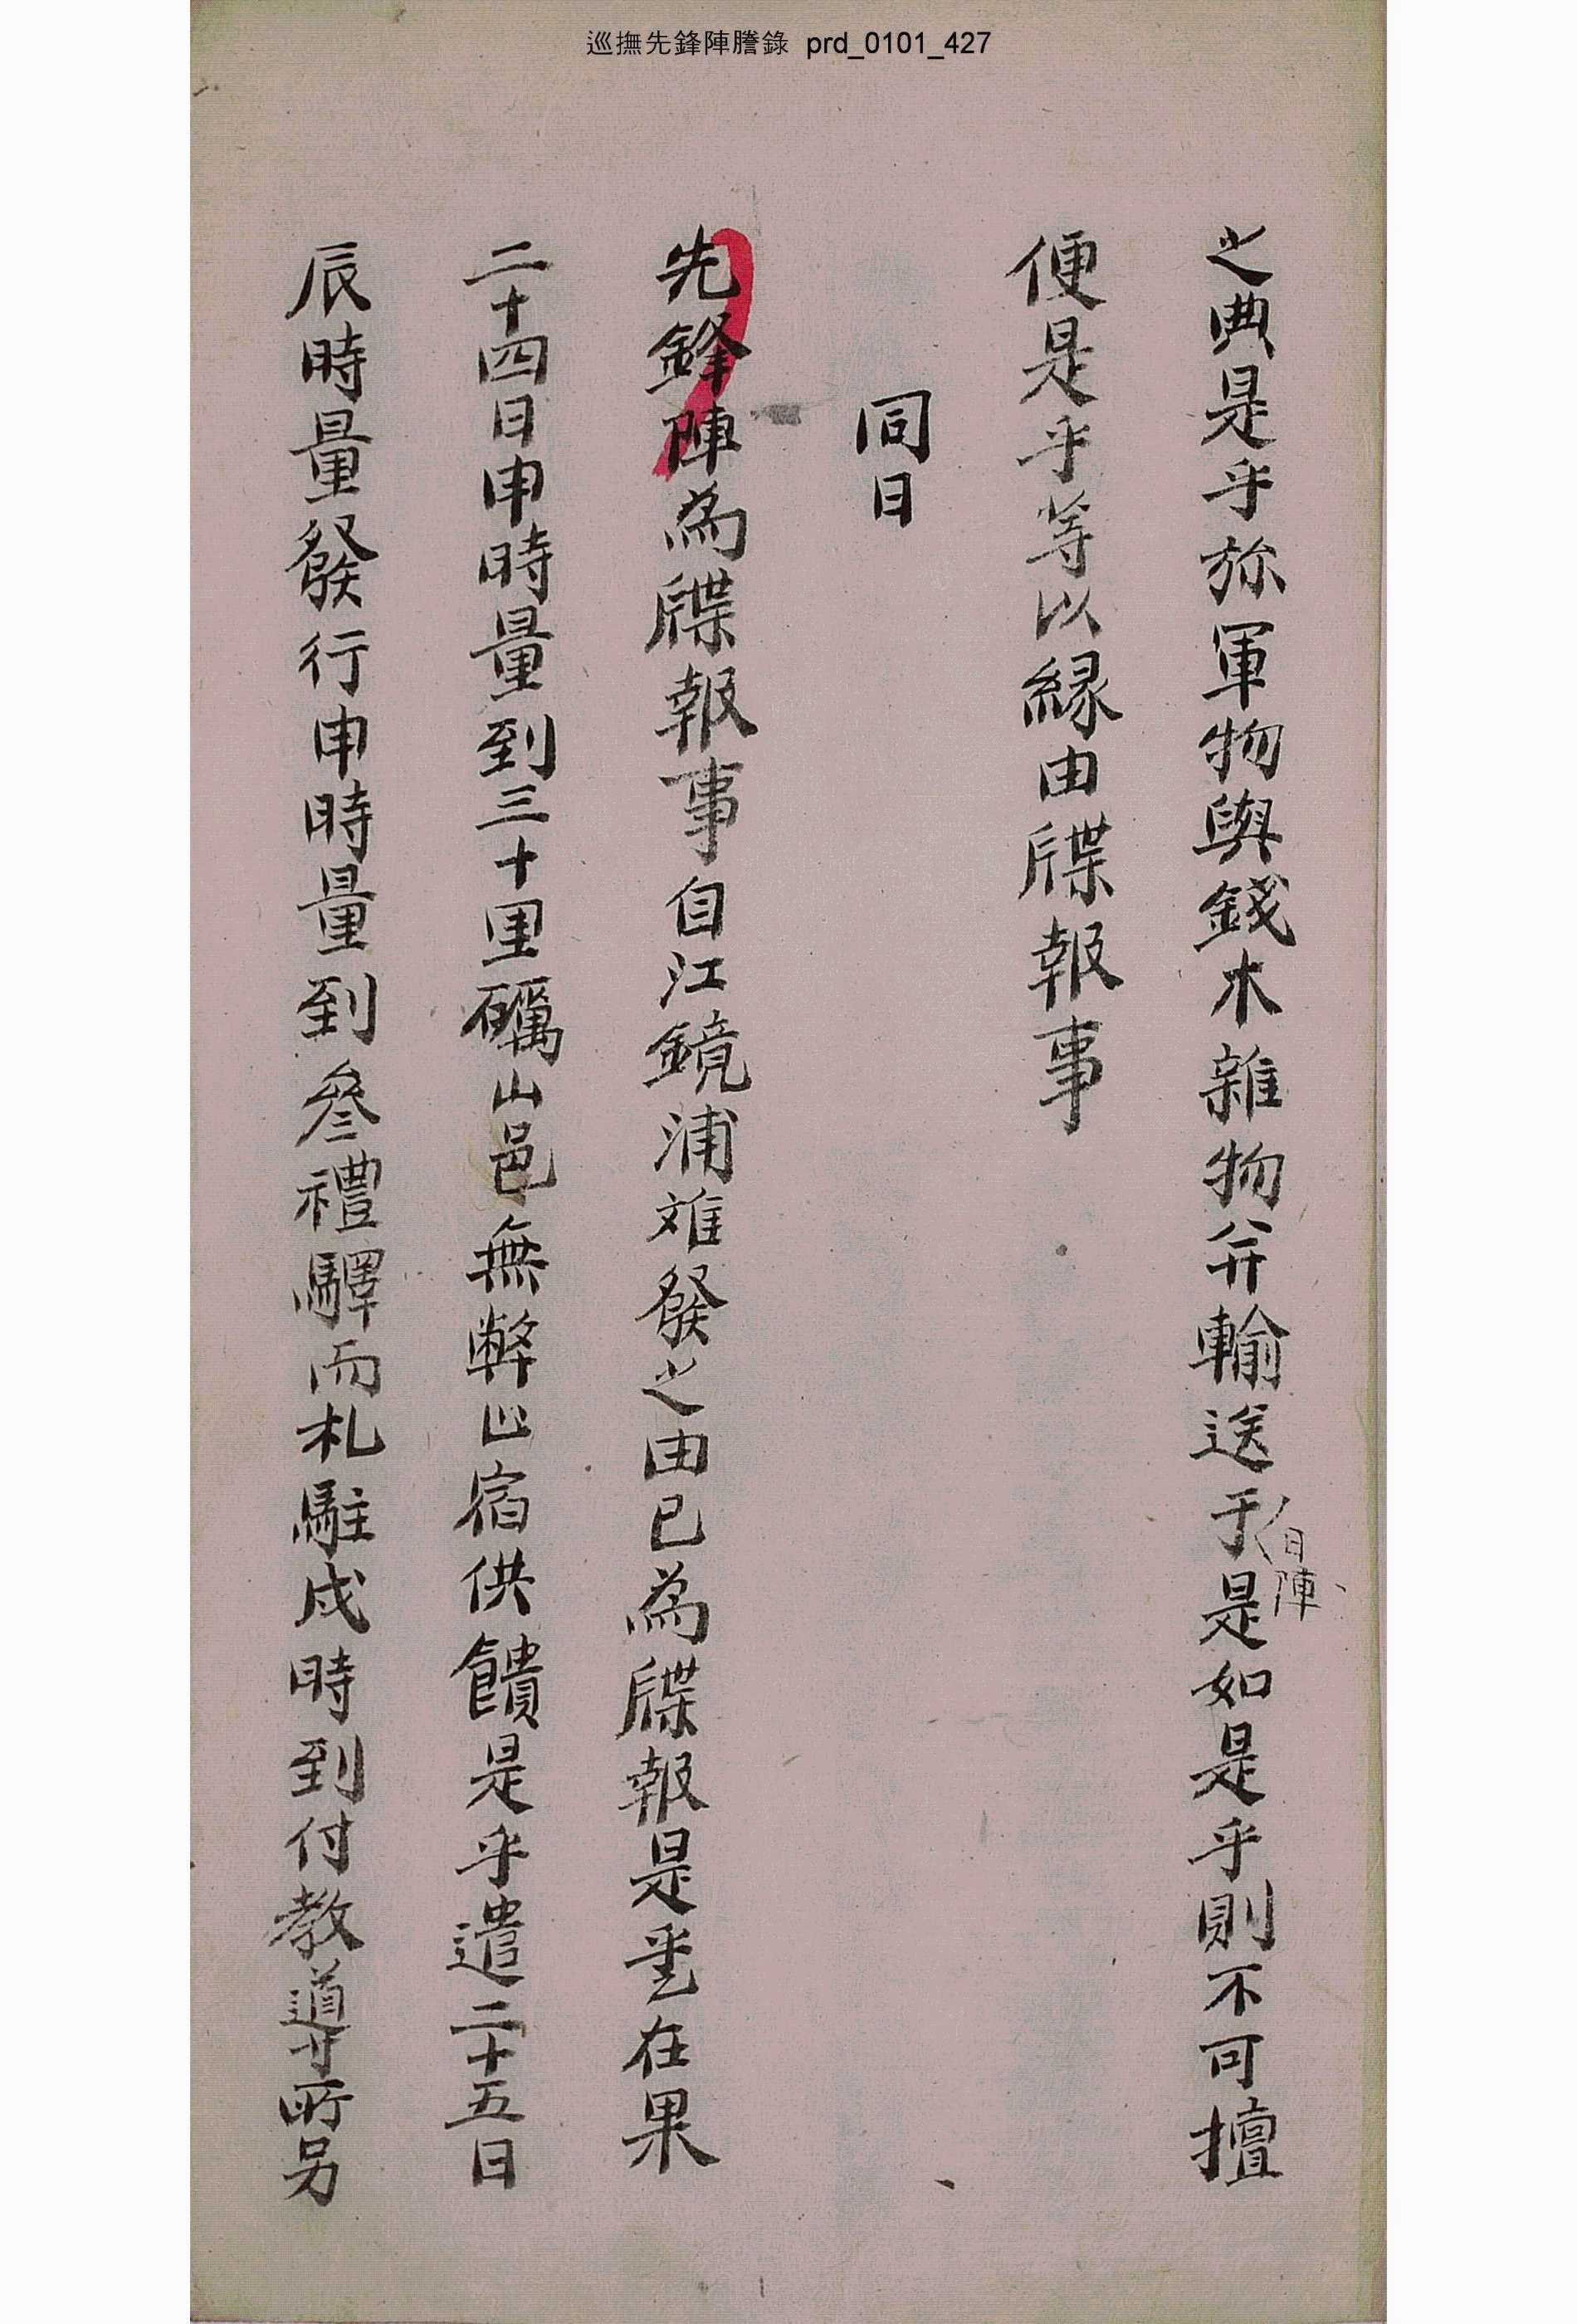 巡撫先鋒陣謄錄 prd_0101_427
之典是乎旀軍物與錢木雜物幷輸送于日陣是如是乎則不可擅
便是乎等以緣由牒報事
同日
先鋒陣為牒報事自江鏡浦離發之由已為牒報是在果
二十四日申時量到三十里礪山邑無弊止宿供饋是乎遣二十五日
辰時量發行申時量到叅禮驛而札駐戌時到付教導所另